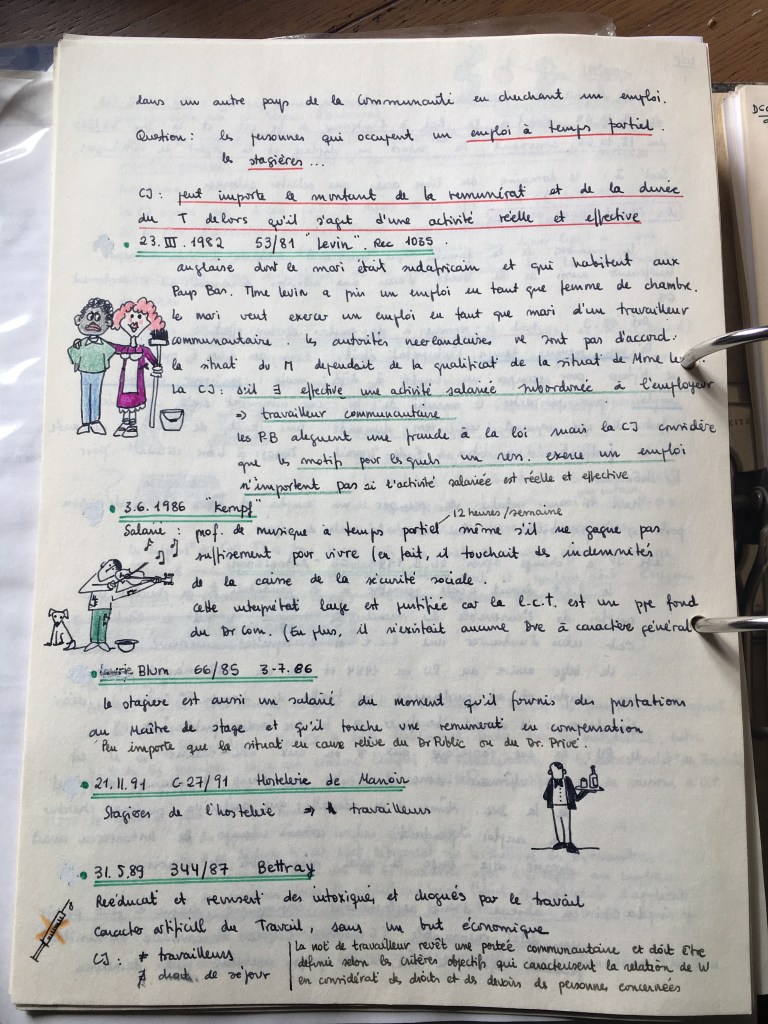 dans un autre pays de la Communauti en cherchant un emploi.
Question: les personnes qui occupent un emploi à temps partiel.
les stagières ...
CJ: peut importe le montant de la remunérat et de la durée
du T delors qu'il s'agit d'une activité réelle et effective
• 23.III.1982 53/81 "Levin". Rec 1035.
anglaise dont le mari était sudafricain et qui habitent aux
Pays Bas. Mme Levin a pris un emploi en tant que femme de chambre.
le mari veut exercer un emploi en tant que mari d'un travailleur
communautaire. les autorités neerlandaises ne sont pas d'accord:
la situat du M dependait de la qualificat de la situat de Mme
La CJ: s'il ∃ effective une activité salariée subordonée à l'employeur
⇒ travailleur communautaire
les P.B aleguent une fraude à la loi mais la CJ considère
que les motif pour lesquels un ress. exerce un emploi
n'importent pas si l'activité salariée est réelle et effective
• 3.6.1986 "Kempf"
12 heures/semaine
Salarié: prof. de musique à temps partiel même s'il ne gagne pas
suffisement pour vivre (en fait, il touchait des indemnités
de la caisse de la sécurité sociale.
cette interprétat large est justifiée car la l.c.T. est un ppe fond
du Dr Com. (En plus, il n'existait aucune Dve à caractère général
• Blum 66/85 3-7.86
le stagiere est aussi un salarié du moment qu'il fournis des prestations
au Maître de stage et qu'il touche une remunerat en compensation
Peu importe que la situat en cause relève du Dr Public ou du Dr. Privé.
• 21.11.91 C-27/91 Hostelerie de Manoir
Stagières de l'hostelerie ⇒ travailleurs
• 31.5.89 344/87 Bettray
Reéducat et reinsert des intoxiqués et drogués par le travail
Caracter artificiel du Travail, sans un but économique
CJ: ≠ travailleurs
∄ droit de séjour
La not de travailleur revêt une porteé communautaire et doit être
définie selon les critères objectifs qui caracterisent la relation de W
en considérat des droits et des devoirs des personnes concernées